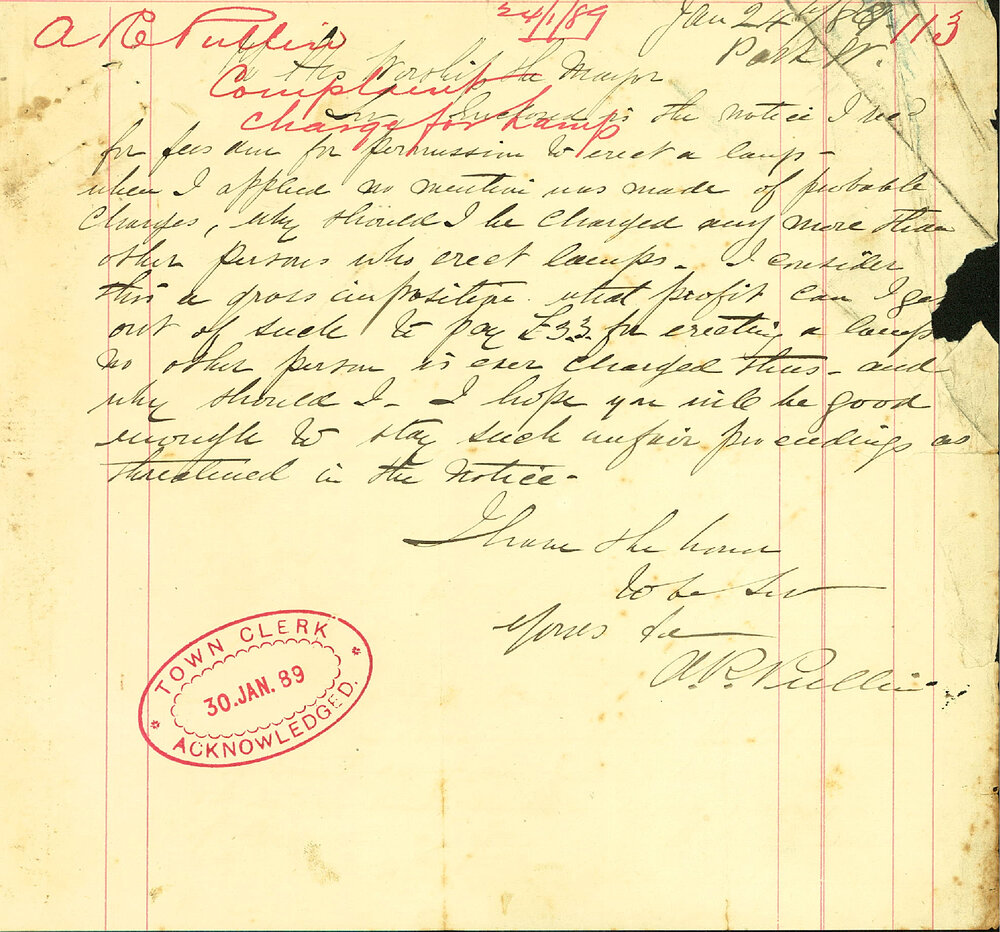 24/1/89
Jan 24th / 89 113
A R Pullin
Park St.
To His Worship the Mayor
Complaint
Sir Enclosed is the notice I recd
Charge for Lamp
for fees due for permission to erect a lamp -
when I applied no mention was made of probable
charges, why should I be charged any more than
other persons who erect lamps - I consider
this a gross imposition. what profit can I get
out of such to pay £3.3. for erecting a lamp
no other person is ever charged thus - and
why should I - I hope you will be good
enough to stay such unfair proceedings as
threatened in the notice -
I have the honor
to be Sir
Yours &c
A. R. Pullin
TOWN CLERK
30. JAN. 89
ACKNOWLEDGED.